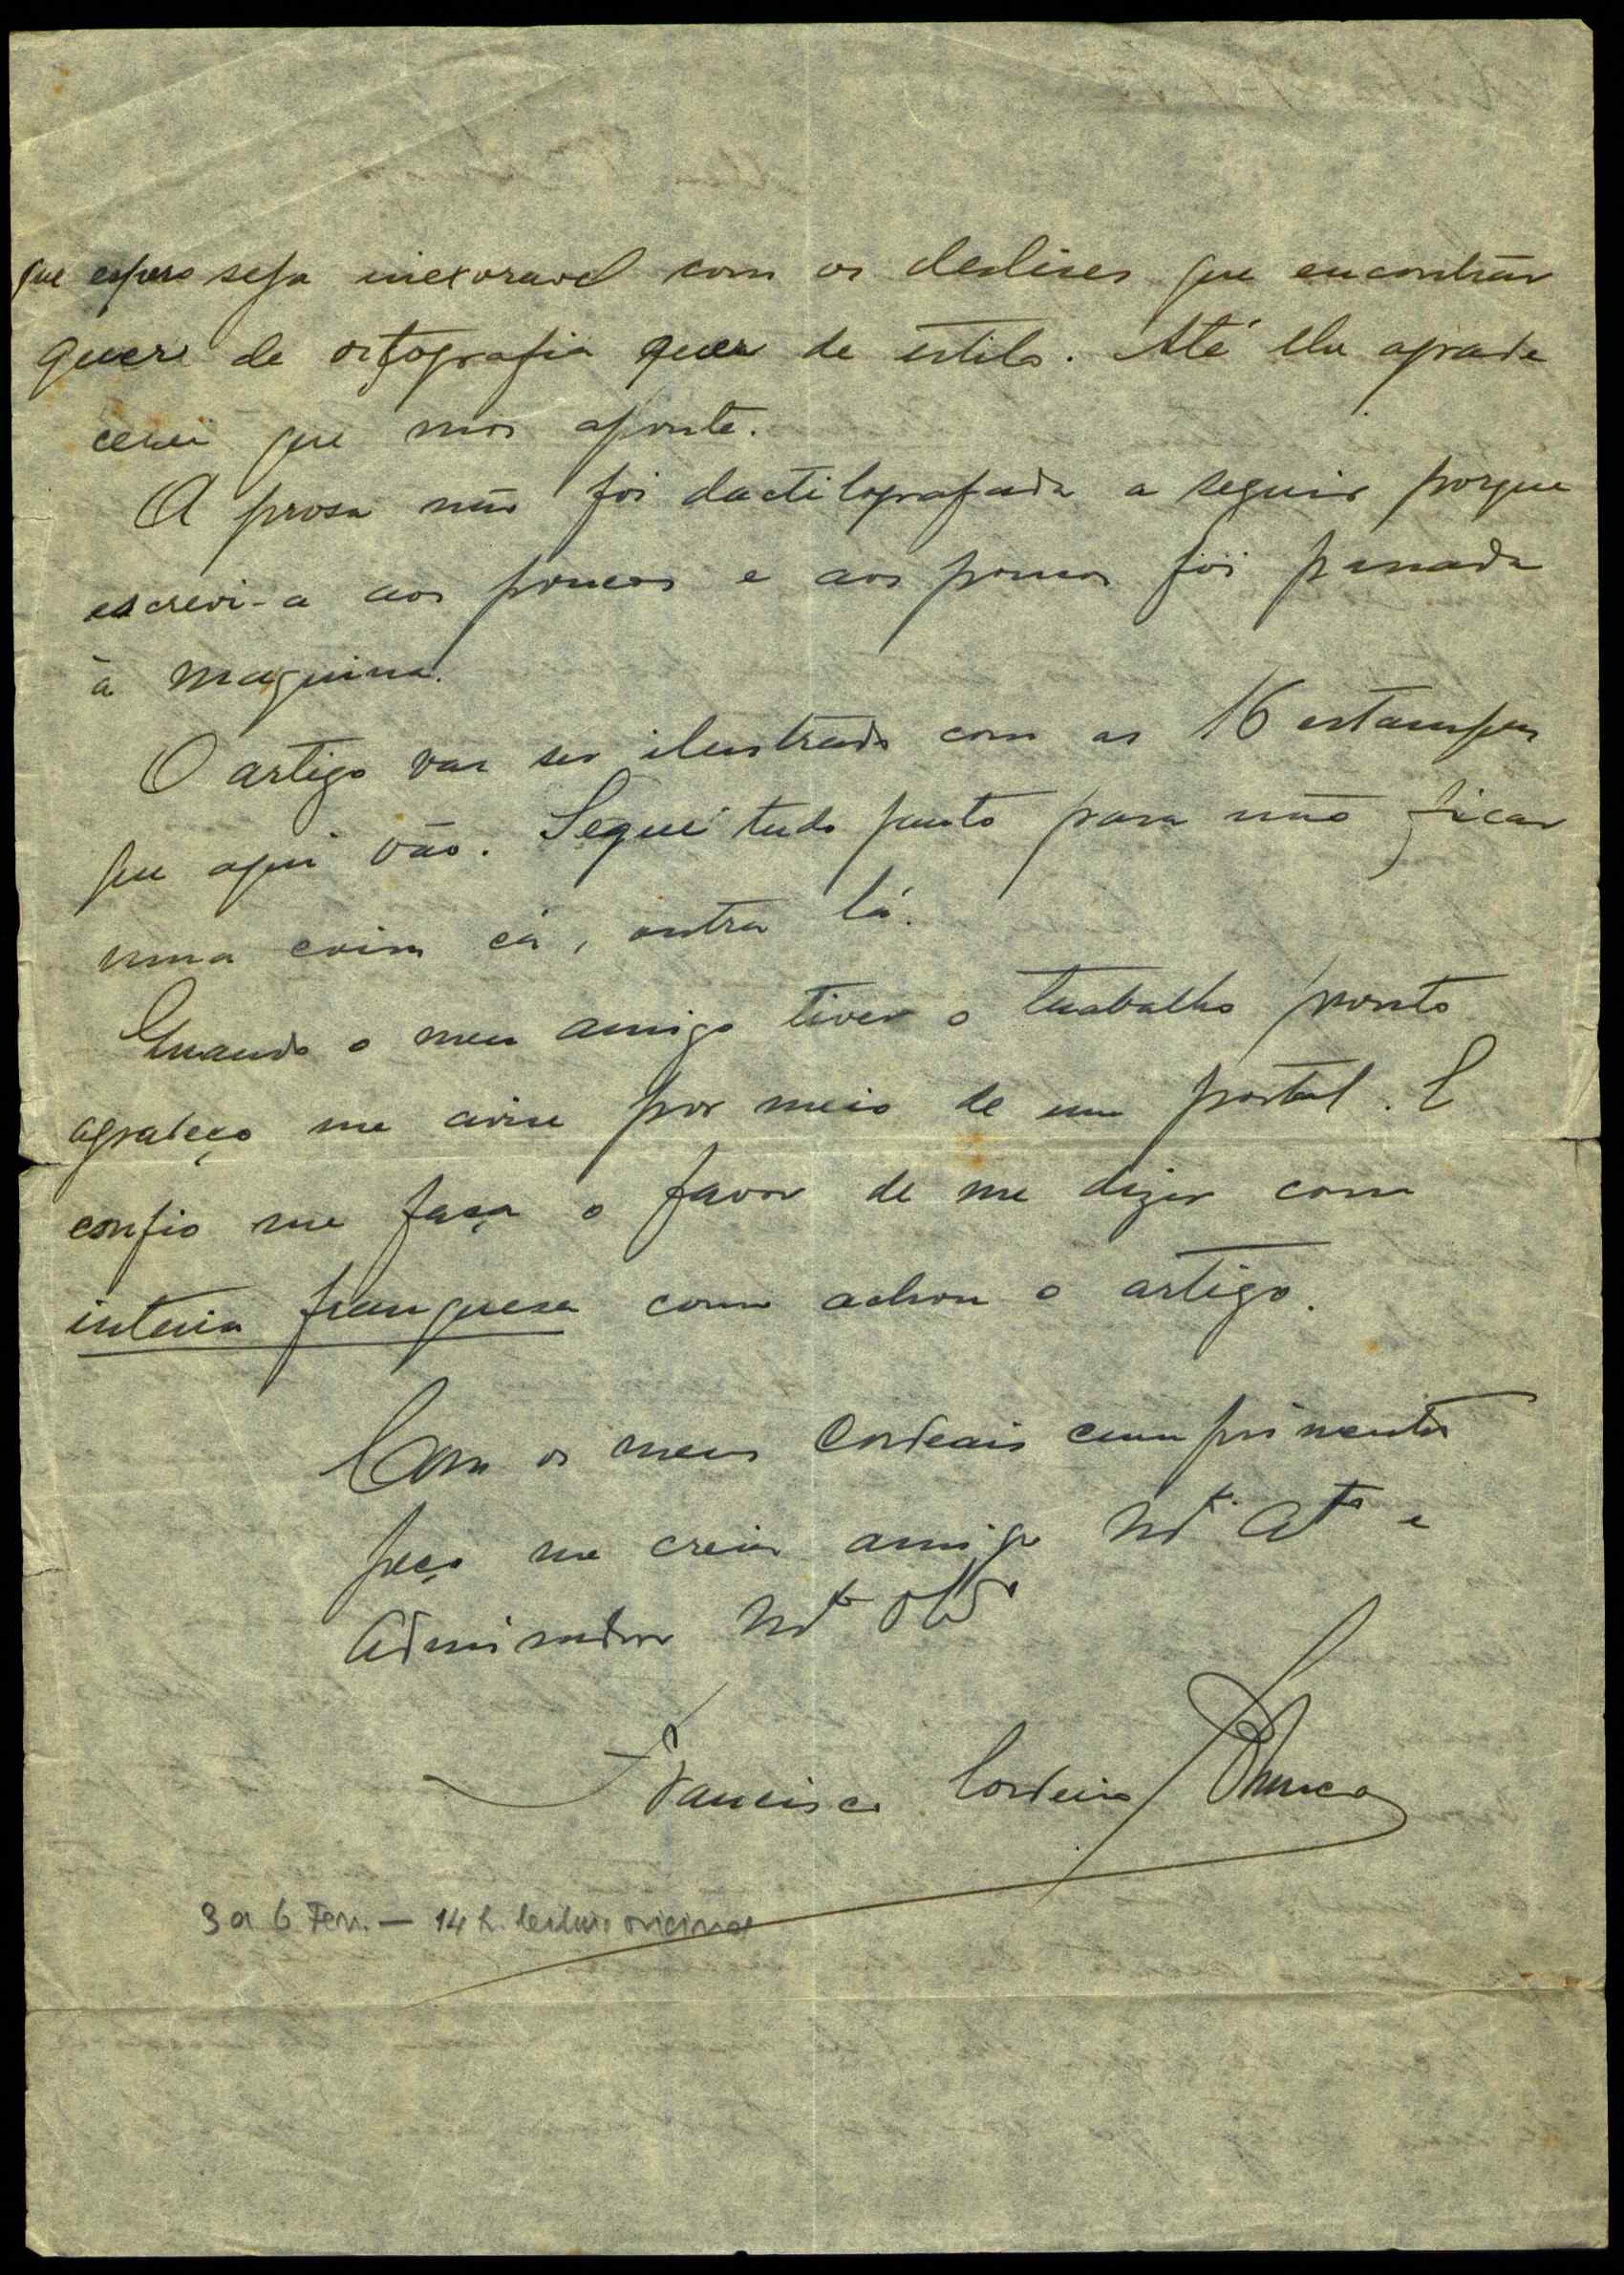 que espero seja inexoravel com os deslises que encontrar
quer de ortografia quer de estilo. Até lhe agrade
cerei que mos aponte.
A prosa não foi dactilografada a seguir porque
escrevi-a aos poucos e aos poucos foi passada
à maquina.
O artigo vai ser ilustrado com as 16 estampas
que aqui vão. Segue tudo junto para não ficar
uma coisa cá, outra lá.
Quando o meu amigo tiver o trabalho pronto
agradeço me avise por meio de um postal. E
confio me faça o favor de me dizer com
inteira franqueza como achou o artigo.
Com os meus cordeais cumprimentos
peço me creia amigo Mt.º At.º e
Admirador Mt.º Obg.º
Francisco Cordeiro Blanco
3 a 6 Fev. — 14 h. leitura original